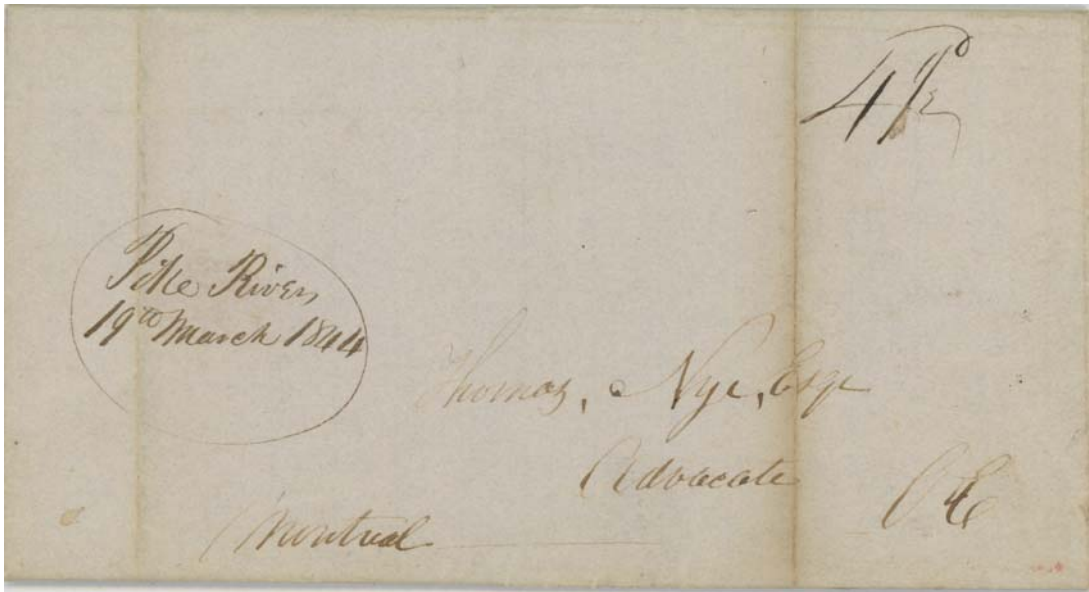 4 ½d
Pike River
19th March 1844
Thomas, Nye, Esqr
Advocate
Montreal